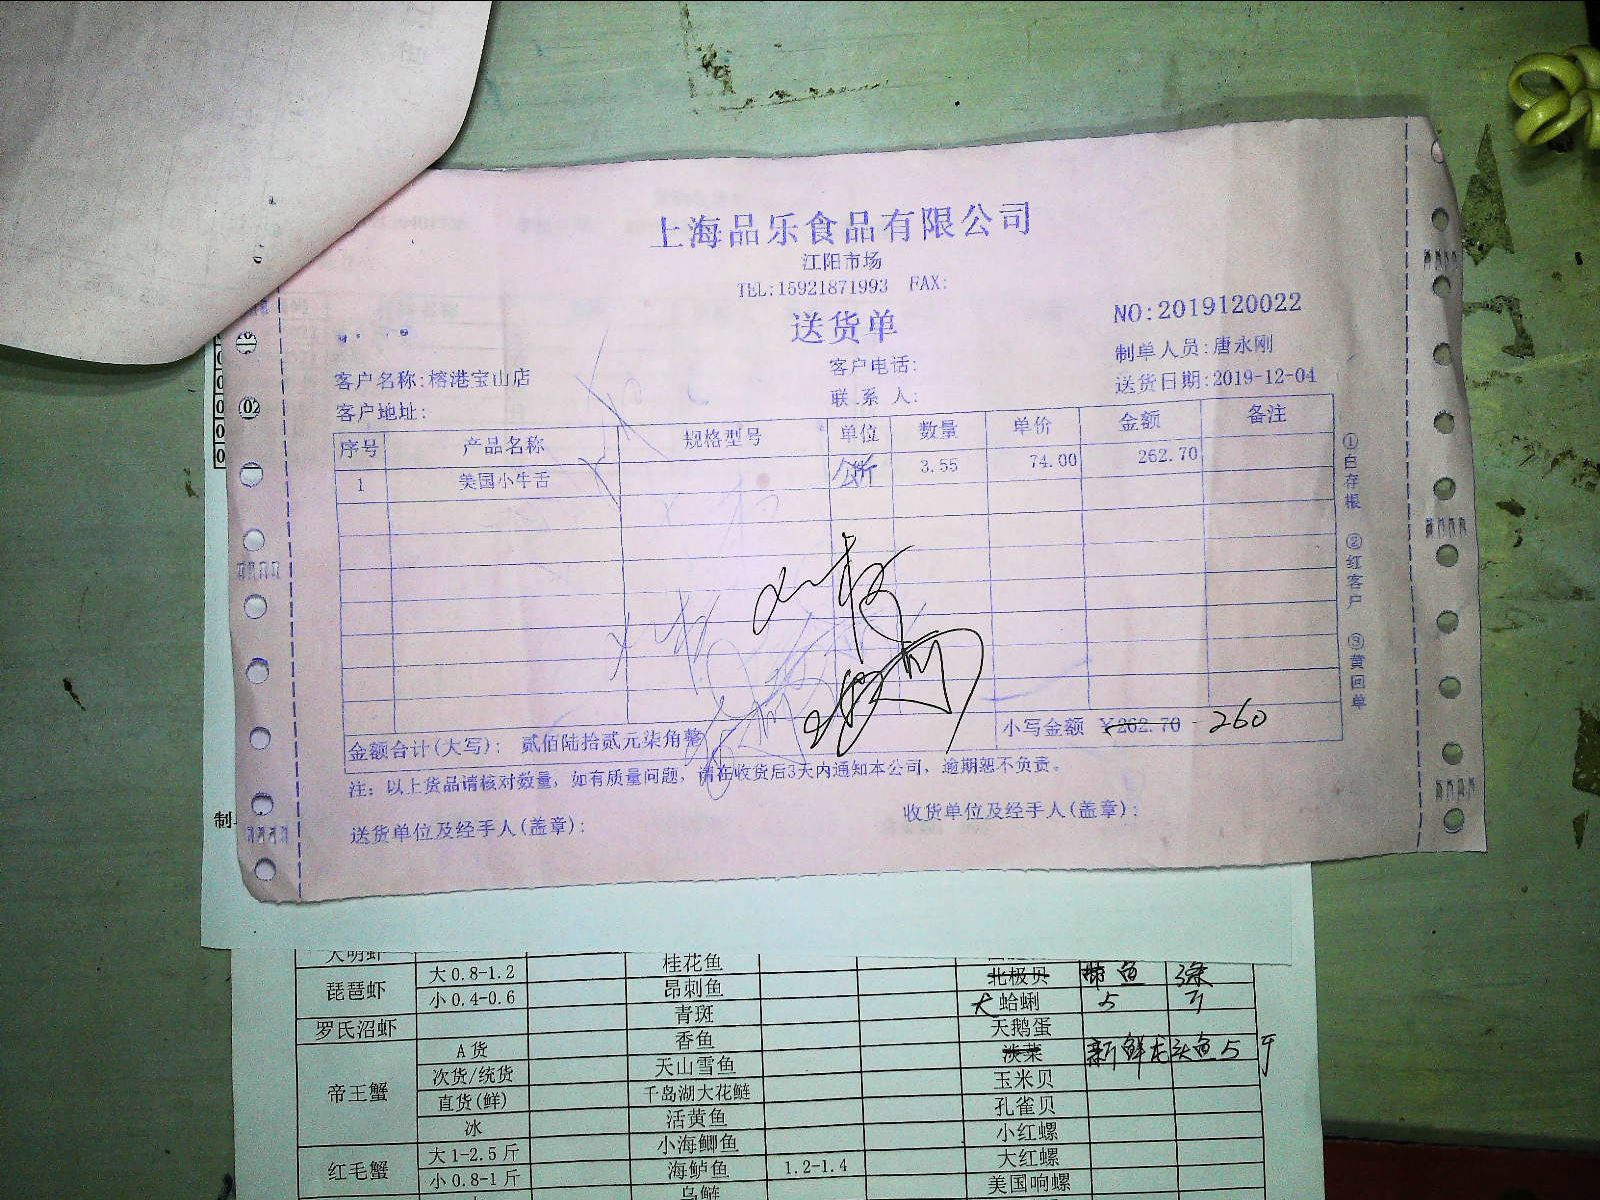 上海品乐食品有限公司
江阳市场
TEL:15921871993 FAX:
送货单
NO:2019120022
制单人员:唐永刚
客户名称:榕港宝山店 客户电话: 送货日期:2019-12-04
客户地址: 联系人:
序号 产品名称 规格型号 单位 数量 单价 金额 备注
1 美国小牛舌 公斤 3.55 74.00 262.70
金额合计(大写): 贰佰陆拾贰元柒角整 小写金额 ¥262.70 260
注: 以上货品请核对数量, 如有质量问题, 请在收货后3天内通知本公司, 逾期恕不负责。
送货单位及经手人(盖章): 收货单位及经手人(盖章):
①白存根 ②红客户 ③黄回单
制
大明虾
琵琶虾 大0.8-1.2 桂花鱼 北极贝
小0.4-0.6 昂刺鱼 大蛤蜊 5 斤
罗氏沼虾 青斑 天鹅蛋
帝王蟹 A货 香鱼 淡菜 新鲜龙头鱼5斤
次货/统货 天山雪鱼 玉米贝
直货(鲜) 千岛湖大花鲢 孔雀贝
冰 活黄鱼 小红螺
红毛蟹 大1-2.5斤 小海鲫鱼 大红螺
小0.8-1斤 海鲈鱼 1.2-1.4 美国响螺
乌鲢